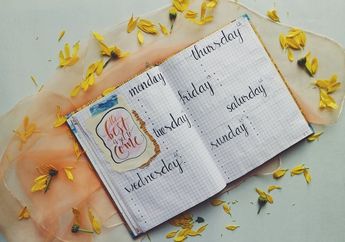 the
best
is yet to
come
monday
tuesday
wednesday
thursday
friday
saturday
sunday